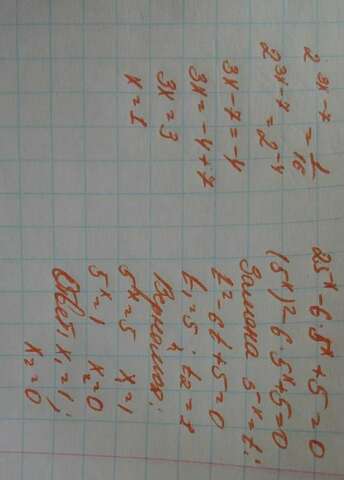 2^(3x-7) = 1/16
2^(3x-7) = 2^(-4)
3x-7 = -4
3x = -4+7
3x = 3
x = 1
25^x - 6·5^x + 5 = 0
(5^x)² - 6·5^x + 5 = 0
Замена 5^x = t;
t² - 6t + 5 = 0
t₁ = 5; t₂ = 1
5^x = 5 x₁ = 1
5^x = 1 x₂ = 0
Ответ x₁ = 1;
x₂ = 0